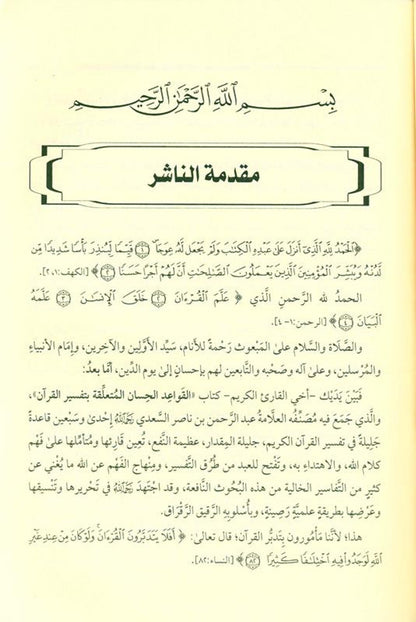 بِسْمِ ٱللَّهِ ٱلرَّحْمَٰنِ ٱلرَّحِيمِ
مقدمة الناشر
﴿ٱلْحَمْدُ لِلَّهِ ٱلَّذِىٓ أَنزَلَ عَلَىٰ عَبْدِهِ ٱلْكِتَٰبَ وَلَمْ يَجْعَل لَّهُۥ عِوَجَا ۜ ۝١ قَيِّمًا لِّيُنذِرَ بَأْسًا شَدِيدًا مِّن
لَّدُنْهُ وَيُبَشِّرَ ٱلْمُؤْمِنِينَ ٱلَّذِينَ يَعْمَلُونَ ٱلصَّٰلِحَٰتِ أَنَّ لَهُمْ أَجْرًا حَسَنًا ۝٢﴾ [الكهف:١، ٢].
الحمدُ لله الرَّحمنِ الَّذي ﴿ عَلَّمَ ٱلْقُرْءَانَ ۝٢ خَلَقَ ٱلْإِنسَٰنَ ۝٣ عَلَّمَهُ
ٱلْبَيَانَ ۝٤﴾ [الرحمن:١-٤].
والصَّلاة والسَّلام علىٰ المَبعوث رَحمةً للأنام، سَيِّد الأوَّلين والآخِرين، وإمَام الأنبياءِ
والمُرسَلين، وعلىٰ آله وصَحْبِه والتَّابعين لهم بإحسانٍ إلىٰ يوم الدِّين، أمَّا بعدُ:
فَبَينَ يَدَيْك -أخي القارئ الكريم- كتاب «القواعد الحِسان المتعلِّقة بتفسير القرآن»،
والَّذي جَمَع فيه مُصَنِّفُه العلَّامةُ عبد الرَّحمن بن ناصر السَّعدي رَحِمَهُ ٱللَّهُ إحْدىٰ وسَبْعين قاعدةً
جَليلةً في تفسير القرآن الكريم، جليلة المِقدار، عظيمة النَّفع، تُعين قارئها ومُتأمِّلها علىٰ فَهْم
كلام الله، والاهتداء به، وتَفْتح للعبد من طُرُق التَّفسير، ومِنهاج الفَهْم عن الله ما يُغْني عن
كثيرٍ من التَّفاسير الخالية من هذه البُحوث النَّافعة، وقد اجْتَهدَ رَحِمَهُ ٱللَّهُ في تَحْريرها وتَنْسيقها
وعَرْضها بطريقةٍ علميَّةٍ رَصِينةٍ، وبأُسْلوبِه الرَّقيق الرَّقْراق.
هذا؛ لأنَّنا مَأمُورون بِتَدبُّر القرآن؛ قال تعالىٰ: ﴿ أَفَلَا يَتَدَبَّرُونَ ٱلْقُرْءَانَ ۚ وَلَوْ كَانَ مِنْ عِندِ غَيْرِ
ٱللَّهِ لَوَجَدُوا۟ فِيهِ ٱخْتِلَٰفًا كَثِيرًا ۝٨٢﴾ [النساء:٨٢].